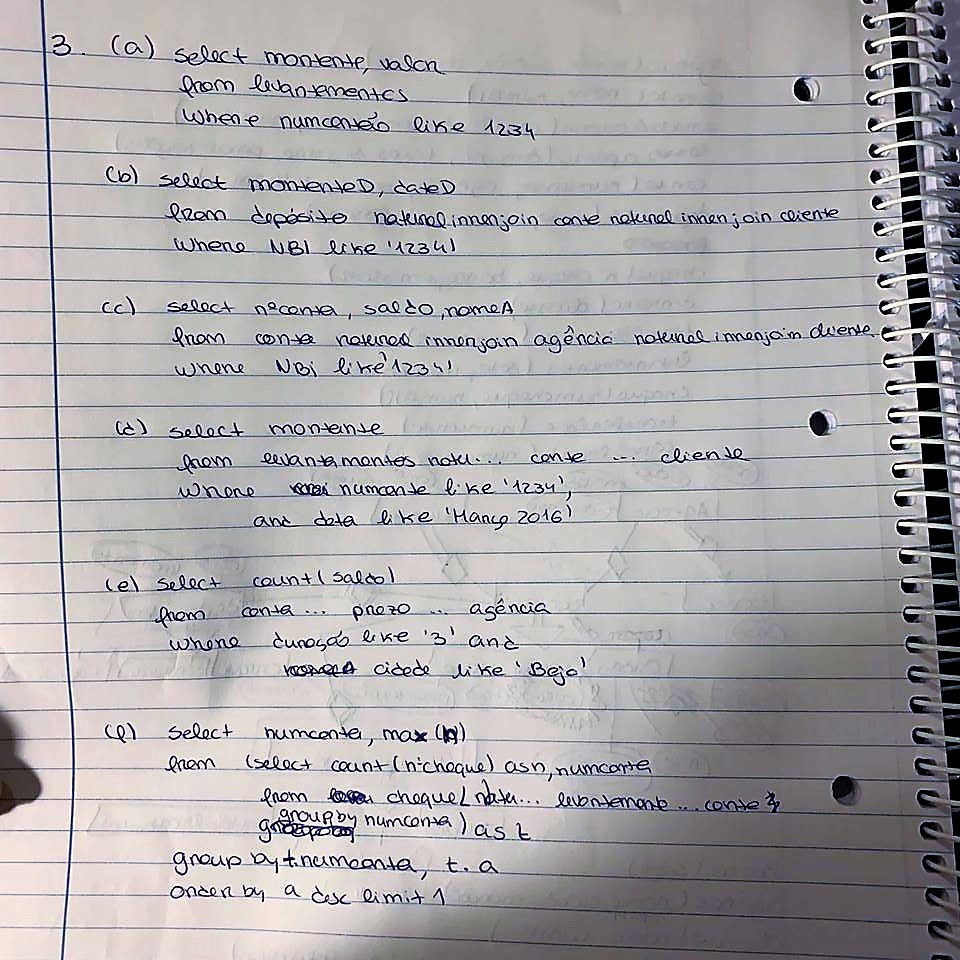 3. (a) select montante, valor
from levantamentos
where numcartão like 1234
(b) select montanteD, dataD
from depósito natural innerjoin conta natural innerjoin cliente
where NBI like '1234'
(c) select nºconta, saldo, nomeA
from conta natural innerjoin agência natural innerjoin cliente
where NBi like '1234'
(d) select montante
from levantamentos natu... conta ... cliente
where numconta like '1234',
and data like 'Março 2016'
(e) select count(saldo)
from conta ... prazo ... agência
where duração like '3' and
cidade like 'Beja'
(f) select numconta, max(n)
from (select count(nºcheque) as n, numconta
from cheque natu... levantamento ... conta
group by numconta) as t
group by t.numconta, t.a
order by a desc limit 1